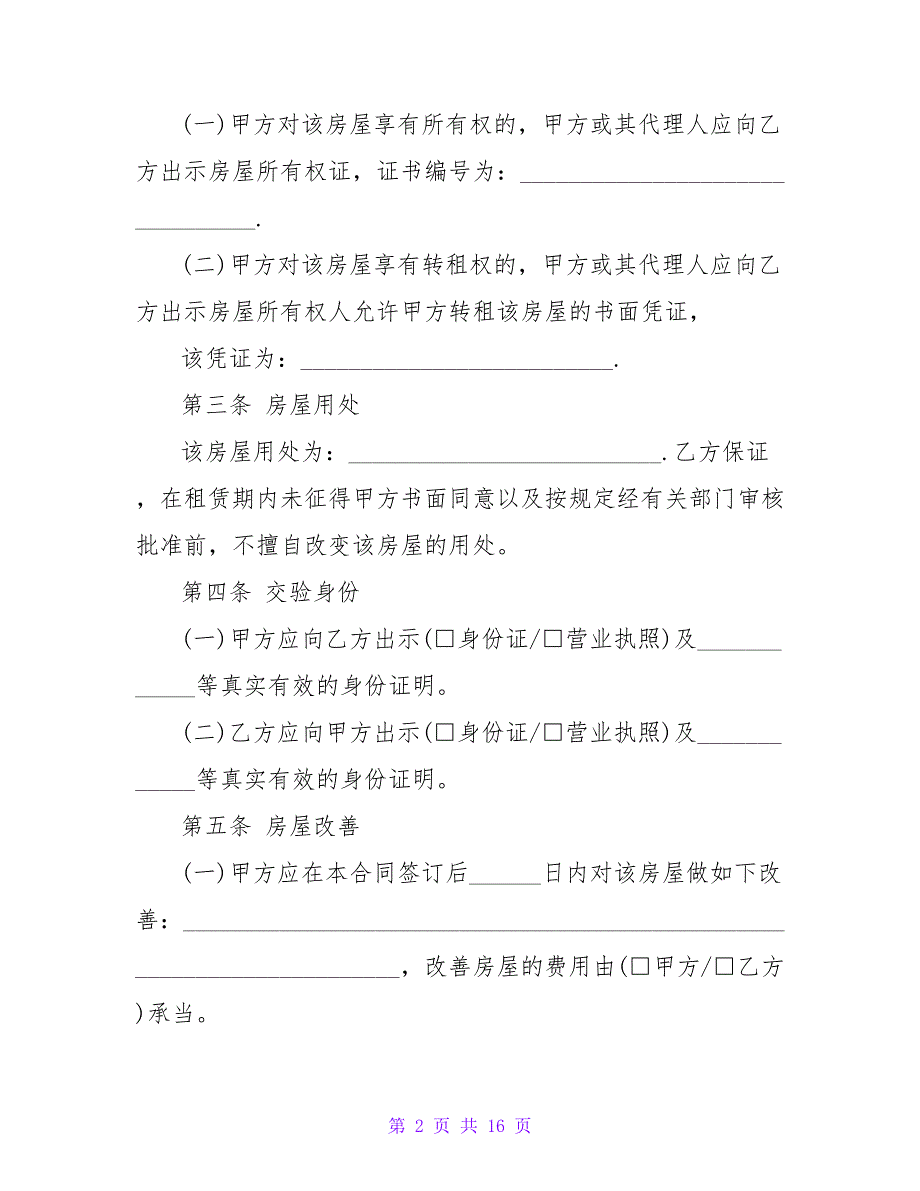 (一)甲方对该房屋享有所有权的，甲方或其代理人应向乙
方出示房屋所有权证，证书编号为：______________________
__________.
(二)甲方对该房屋享有转租权的，甲方或其代理人应向乙
方出示房屋所有权人允许甲方转租该房屋的书面凭证，
该凭证为：__________________________.
第三条 房屋用处
该房屋用处为：__________________________.乙方保证
，在租赁期内未征得甲方书面同意以及按规定经有关部门审核
批准前，不擅自改变该房屋的用处。
第四条 交验身份
(一)甲方应向乙方出示(□身份证/□营业执照)及_______
_____等真实有效的身份证明。
(二)乙方应向甲方出示(□身份证/□营业执照)及_______
_____等真实有效的身份证明。
第五条 房屋改善
(一)甲方应在本合同签订后______日内对该房屋做如下改
善：__________________________________________________
______________________，改善房屋的费用由(□甲方/□乙方
)承当。
第 2 页 共 16 页